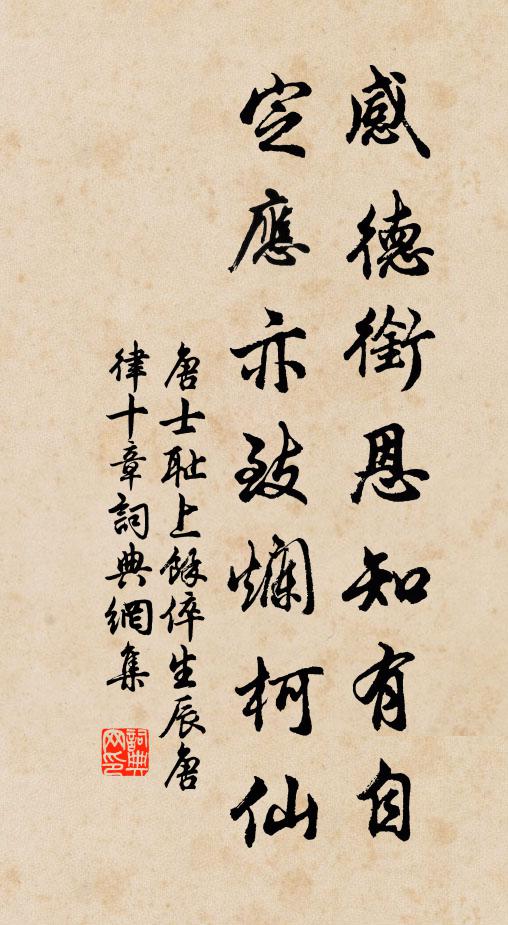 感德銜恩知有自
定應亦致爛柯仙
唐士耻上餘倅生辰唐
律十章詞典網集
詞典
网印